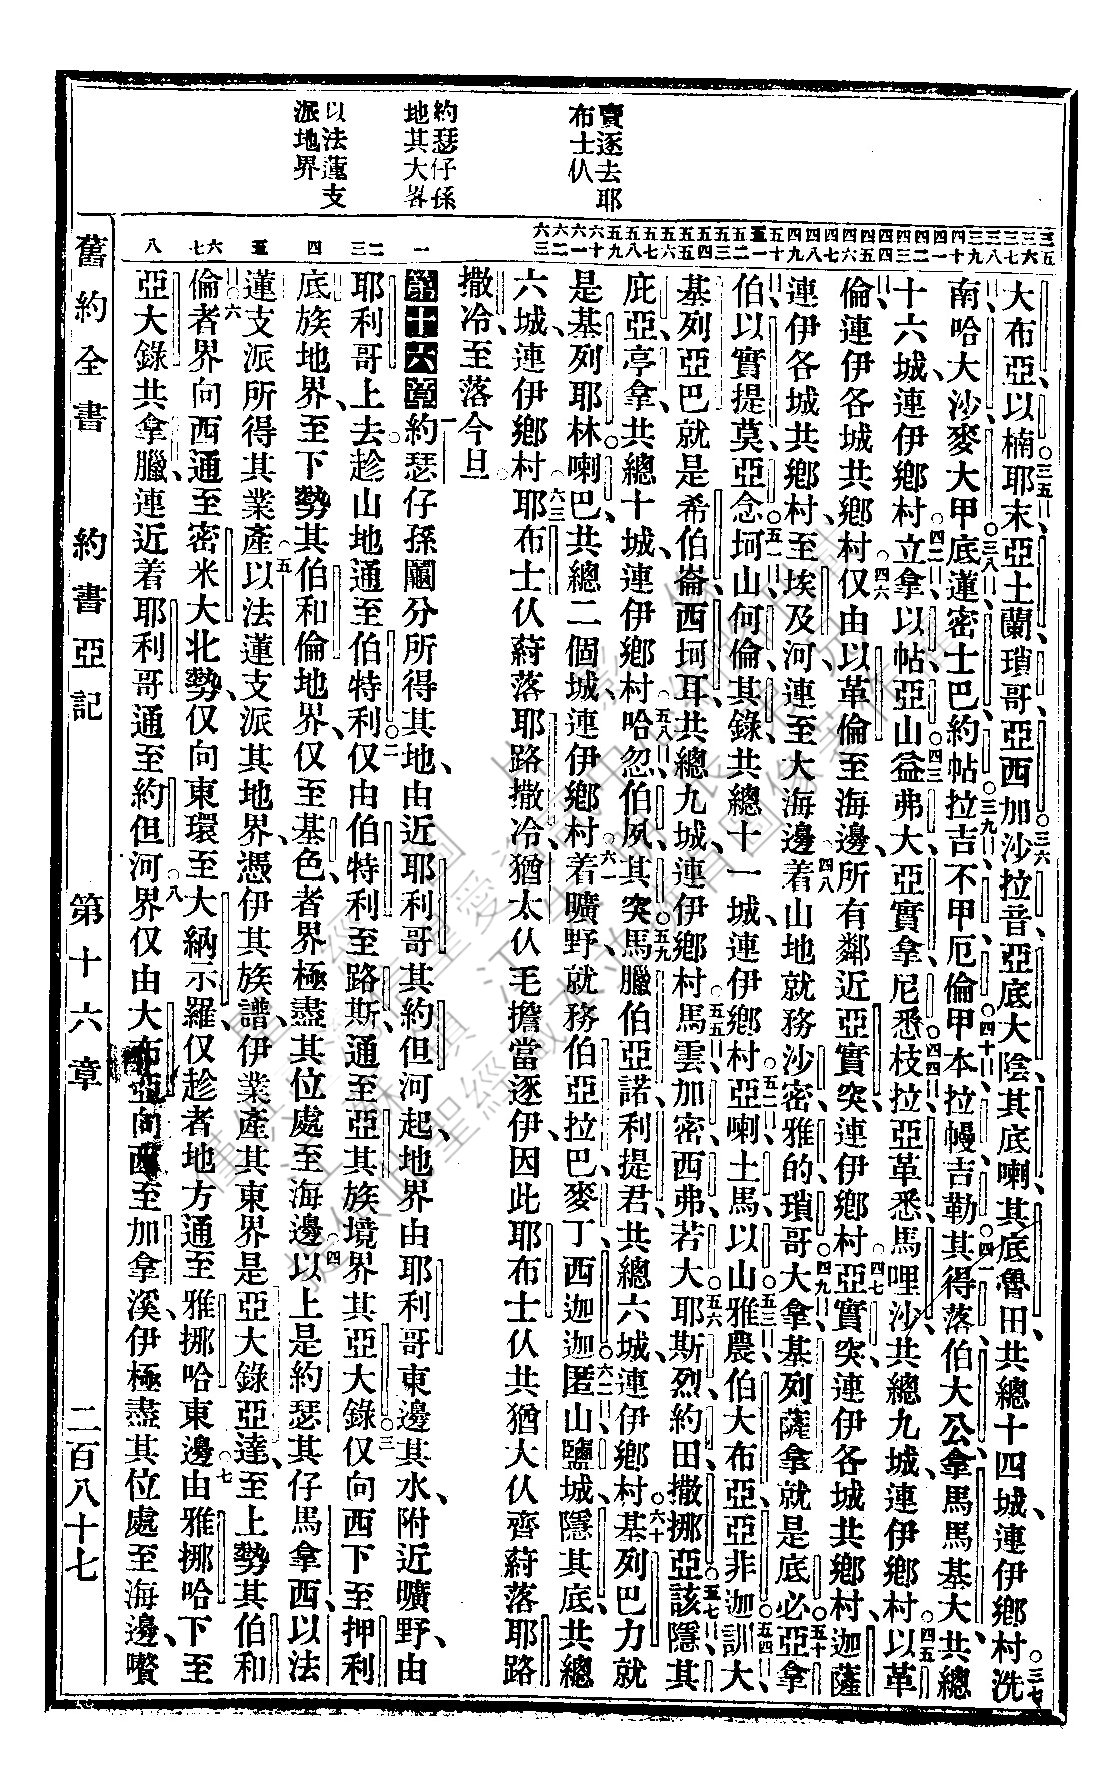 賣逐去耶
布士仈
約瑟仔孫
地其大畧
以法蓮支
派地界
三五 三六 三七 三八 三九 四十 四一 四二 四三 四四 四五 四六 四七 四八 四九 五十 五一 五二 五三 五四 五五 五六 五七 五八 五九 六十 六一 六二 六三
大布亞以楠耶末亞土蘭瑣哥亞西加沙拉音亞底大陰其底喇其底魯田共總十四城連伊鄉村洗
南哈大沙麥大甲底蓮密士巴約帖拉吉不甲厄倫甲本拉幔吉勒其得落伯大公拿馬馬基大共總
十六城連伊鄉村立拿以帖亞山益弗大亞實拿尼悉枝拉亞革悉馬哩沙共總九城連伊鄉村以革
倫連伊各城共鄉村仅由以革倫至海邊所有鄰近亞實突連伊鄉村亞實突連伊各城共鄉村迦薩
連伊各城共鄉村至埃及河連至大海邊着山地就務沙密雅的瑣哥大拿基列薩拿就是底必亞拿
伯以實提莫亞念坷山何倫其錄共總十一城連伊鄉村亞喇土馬以山雅農伯大布亞亞非迦訓大
基列亞巴就是希伯崙西坷耳共總九城連伊鄉村馬雲加密西弗若大耶斯烈約田撒挪亞該隱其
庇亞亭拿共總十城連伊鄉村哈忽伯夙其突馬臘伯亞諾利提君共總六城連伊鄉村基列巴力就
是基列耶林喇巴共總二個城連伊鄉村着曠野就務伯亞拉巴麥丁西迦迦匿山鹽城隱其底共總
六城連伊鄉村耶布士仈䔟落耶路撒冷猶太仈毛擔當逐伊因此耶布士仈共猶大仈齊䔟落耶路
撒冷至落今旦
第十六章約瑟仔孫鬮分所得其地由近耶利哥其約但河起地界由耶利哥東邊其水附近曠野由
耶利哥上去趁山地通至伯特利仅由伯特利至路斯通至亞其族境界其亞大錄仅向西下至押利
底族地界至下勢其伯和倫地界仅至基色者界極盡其位處至海邊以上是約瑟其仔馬拿西以法
蓮支派所得其業產以法蓮支派其地界憑伊其族譜伊業產其東界是亞大錄亞達至上勢其伯和
倫者界向西通至密米大北勢仅向東環至大納示羅仅趁者地方通至雅挪哈東邊由雅挪哈下至
亞大錄共拿臘連近着耶利哥通至約但河界仅由大布亞向西至加拿溪伊極盡其位處至海邊嚽
一 二 三 四 五 六 七 八
舊約全書 約書亞記 第十六章 二百八十七